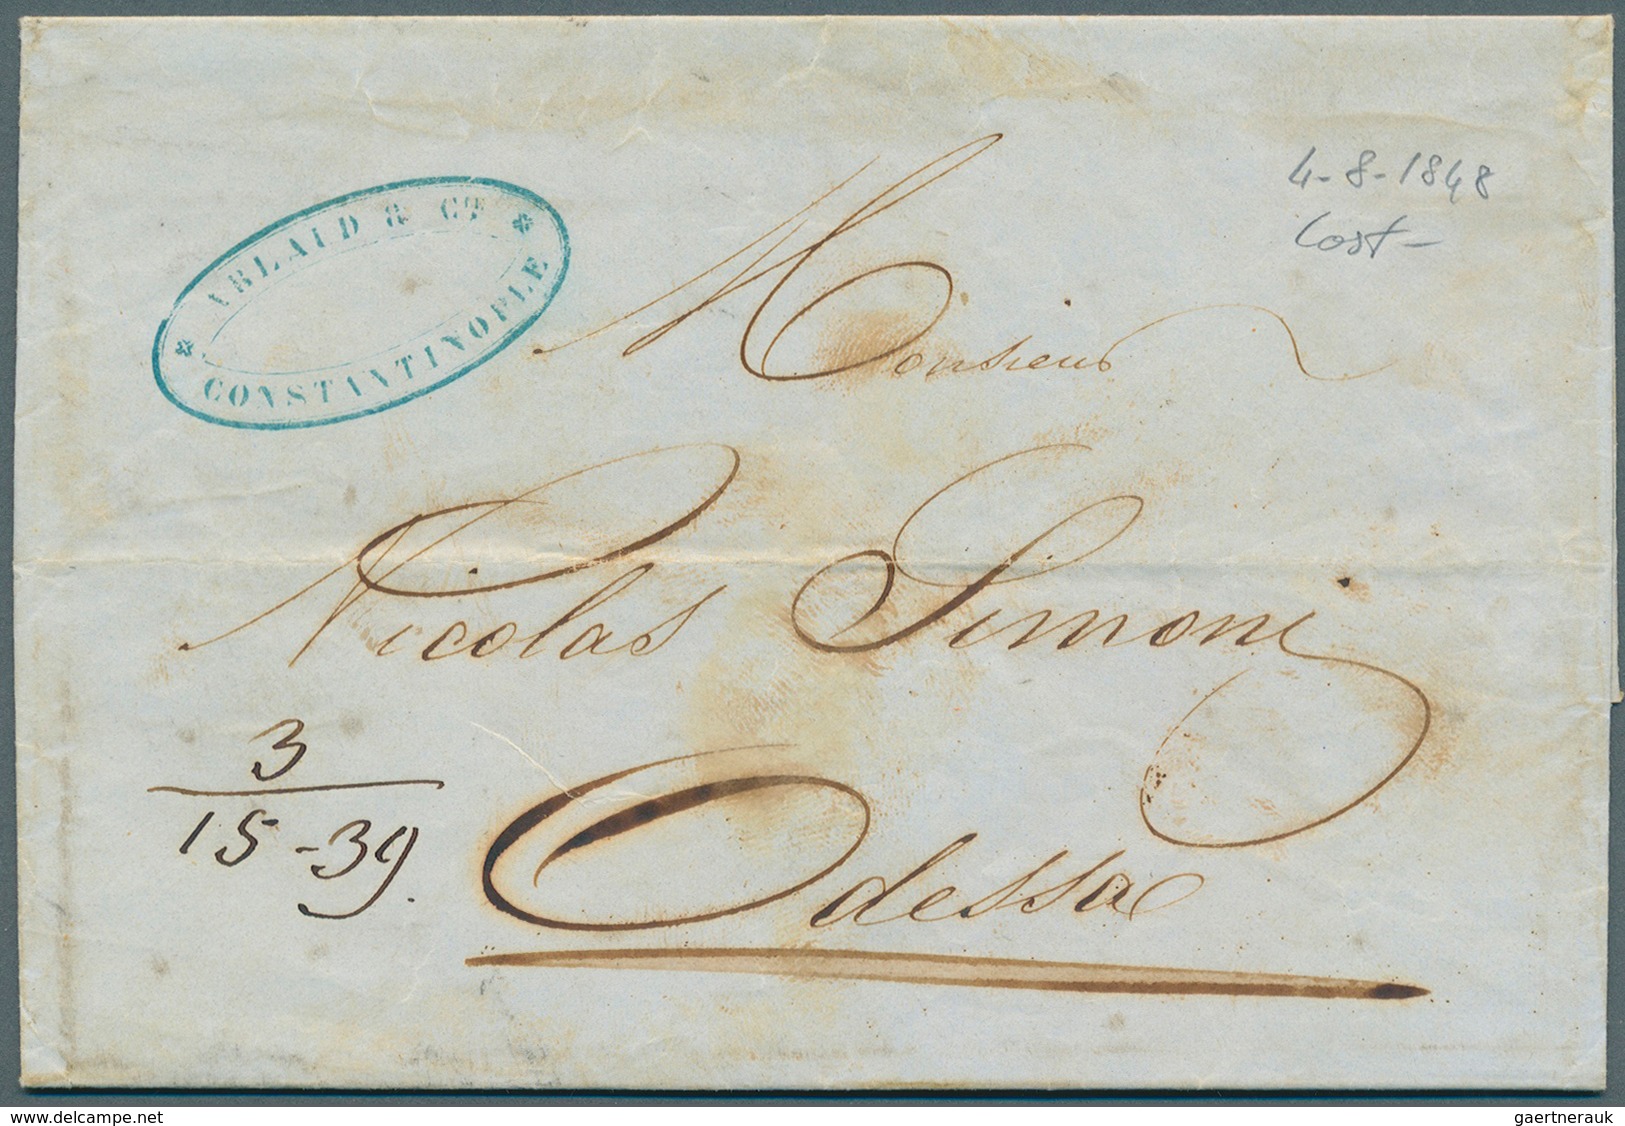 ARLAUD & CIE
CONSTANTINOPLE
4-8-1848
Cost-
Monsieur
Nicolas Simoni
3
15-39.
Odessa
delcampe.net
gaertnerauk